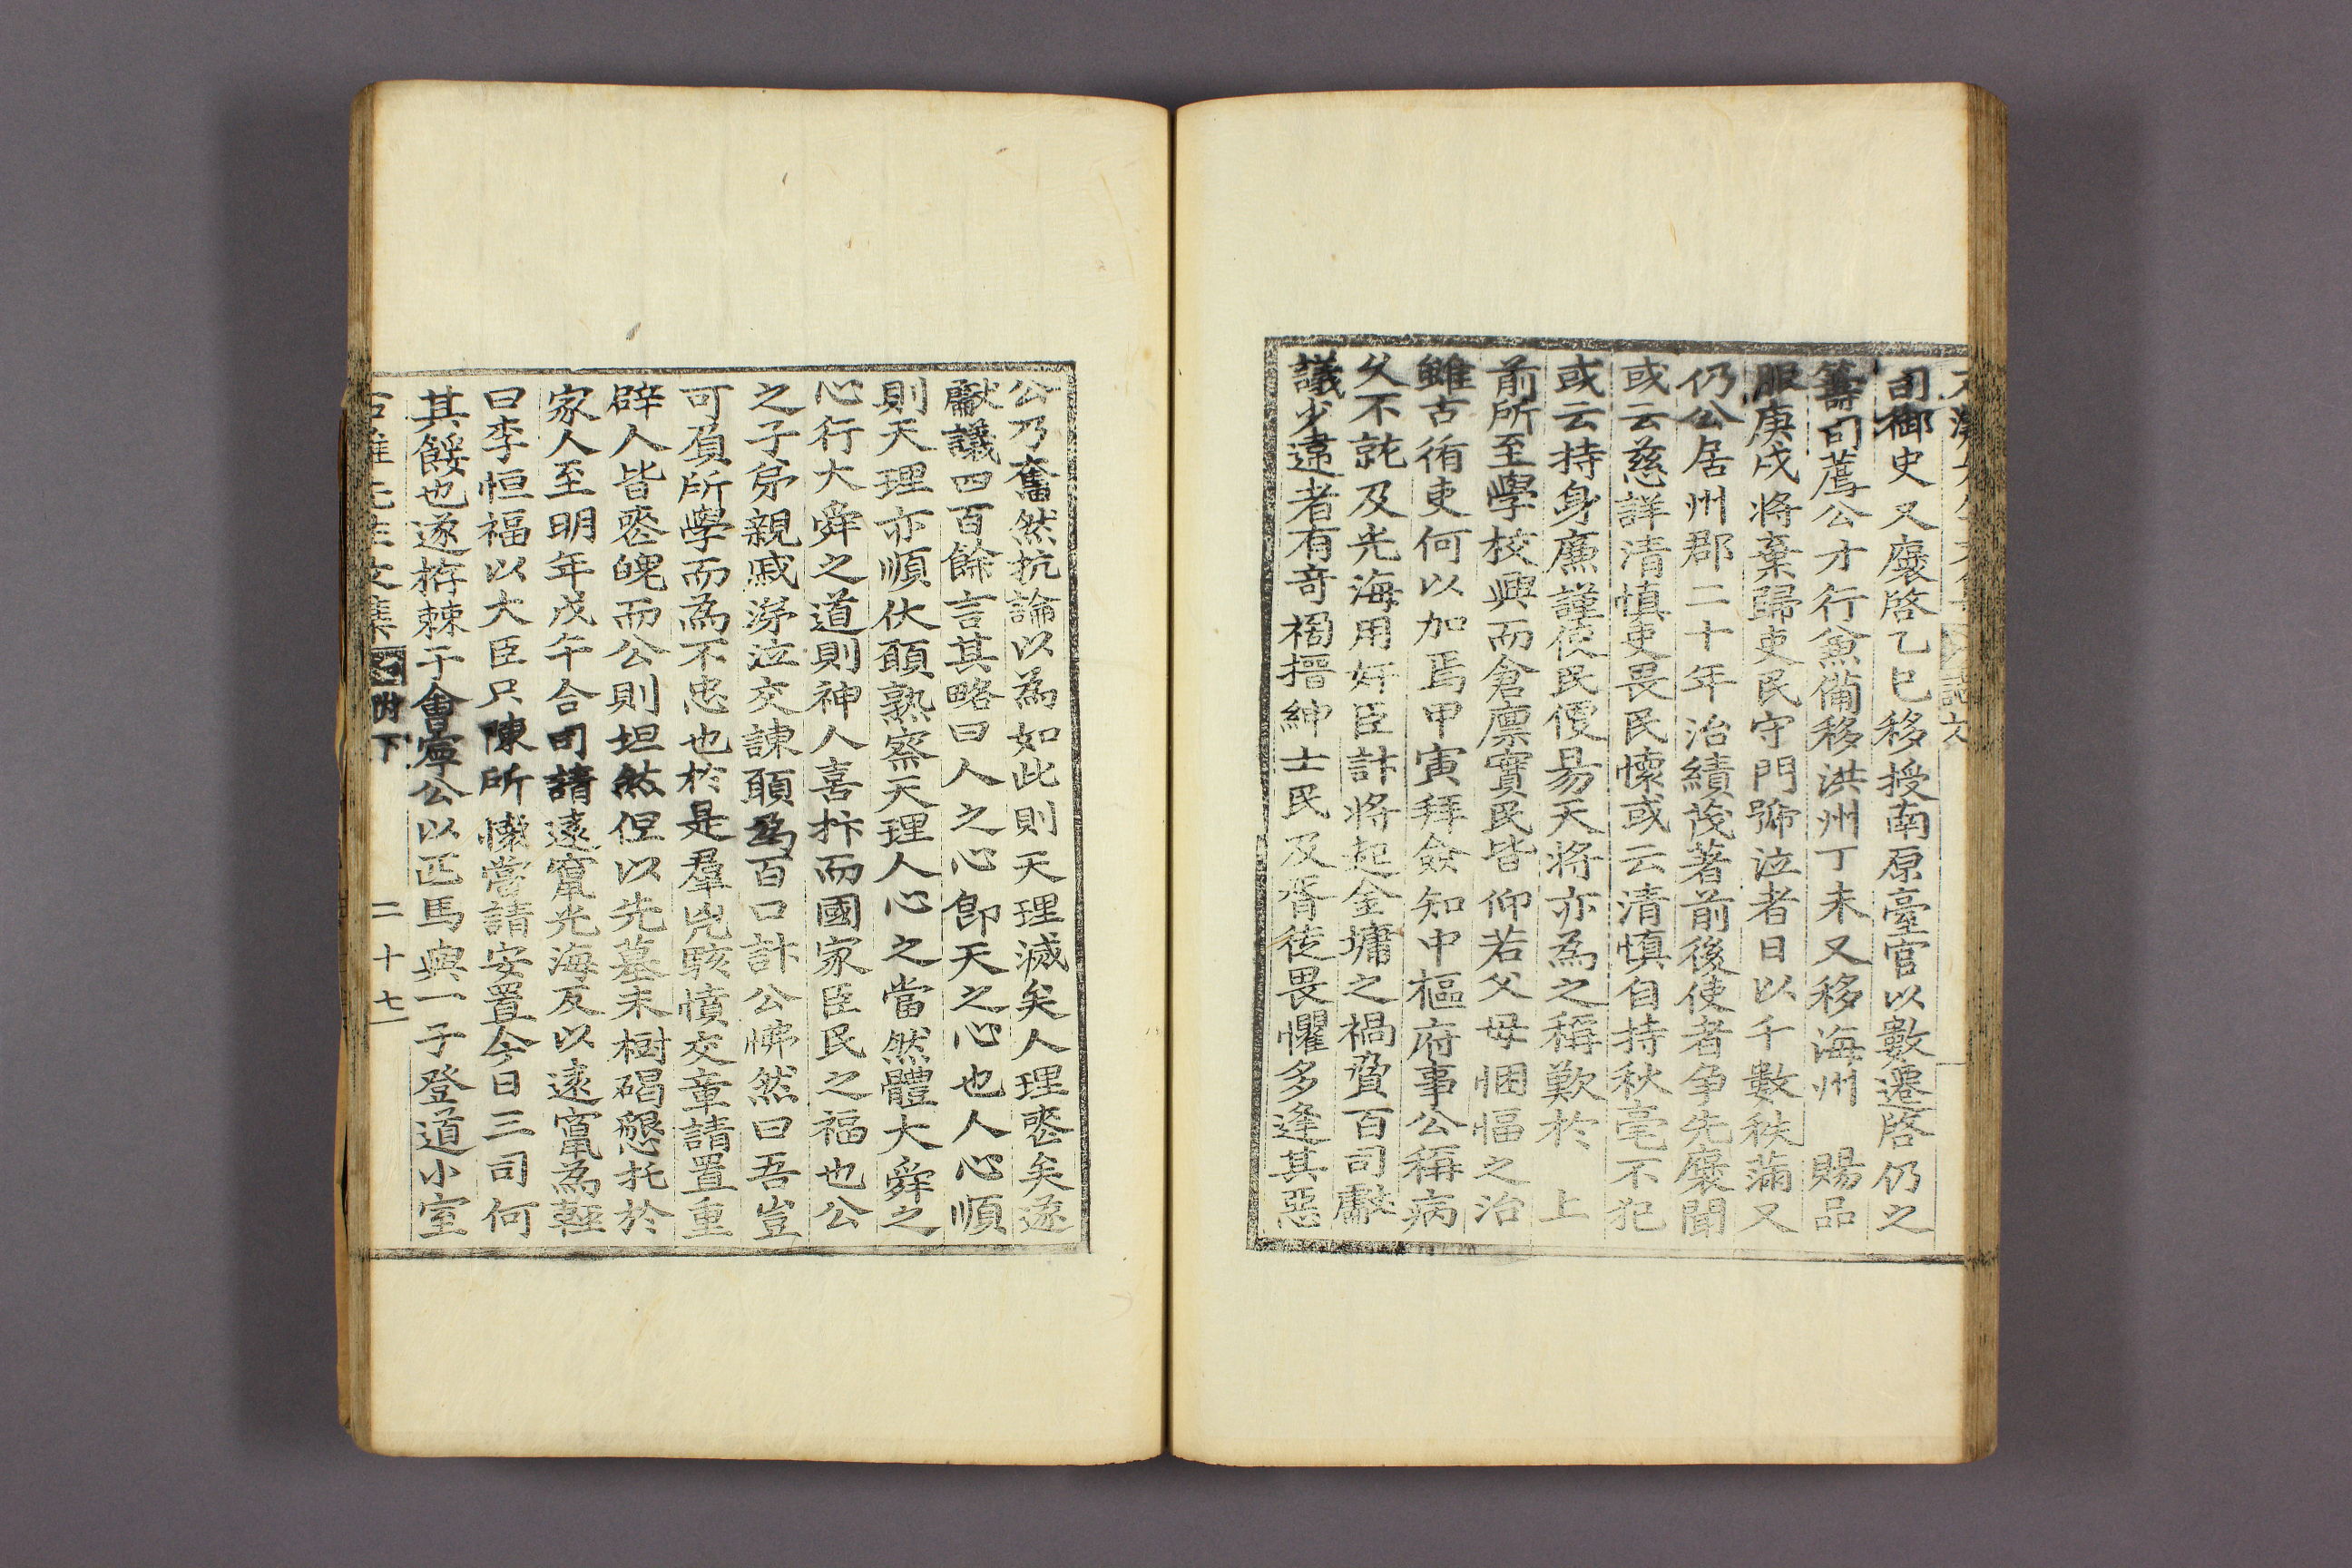 司御史又褒啓乙巳移授南原臺官以數遷啓仍之
籌司薦公才行兼備移洪州丁未又移海州 賜品
服庚戌將棄歸吏民守門號泣者日以千數秩滿又
仍公居州郡二十年治績茂著前後使者争先褒聞
或云慈詳清慎吏畏民懷或云清慎自持秋毫不犯
或云持身廉謹使民便易天將亦為之稱歎於 上
前所至學校興而倉廩實民皆仰若父母悃愊之治
雖古循吏何以加焉甲寅拜僉知中樞府事公稱病
久不就及光海用奸臣計將起金墉之禍脅百司獻
議少違者有奇禍搢紳士民及胥徒畏懼多逢其惡
公乃奮然抗論以為如此則天理滅矣人理喪矣遂
獻議四百餘言其略曰人之心卽天之心也人心順
則天理亦順伏願熟察天理人心之當然體大舜之
心行大舜之道則神人喜抃而國家臣民之福也公
之子弟親戚涕泣交諫願為百口計公怫然曰吾豈
可負所學而為不忠也於是羣兇駭憤交章請置重
辟人皆喪魄而公則坦然但以先墓未樹碣懇托於
家人至明年戊午合司請遠竄光海反以遠竄為輕
曰李恒福以大臣只陳所懷嘗請安置今日三司何
其餒也遂栫棘于會寧公以匹馬與一子登道小室
先生文集 附下 二十七